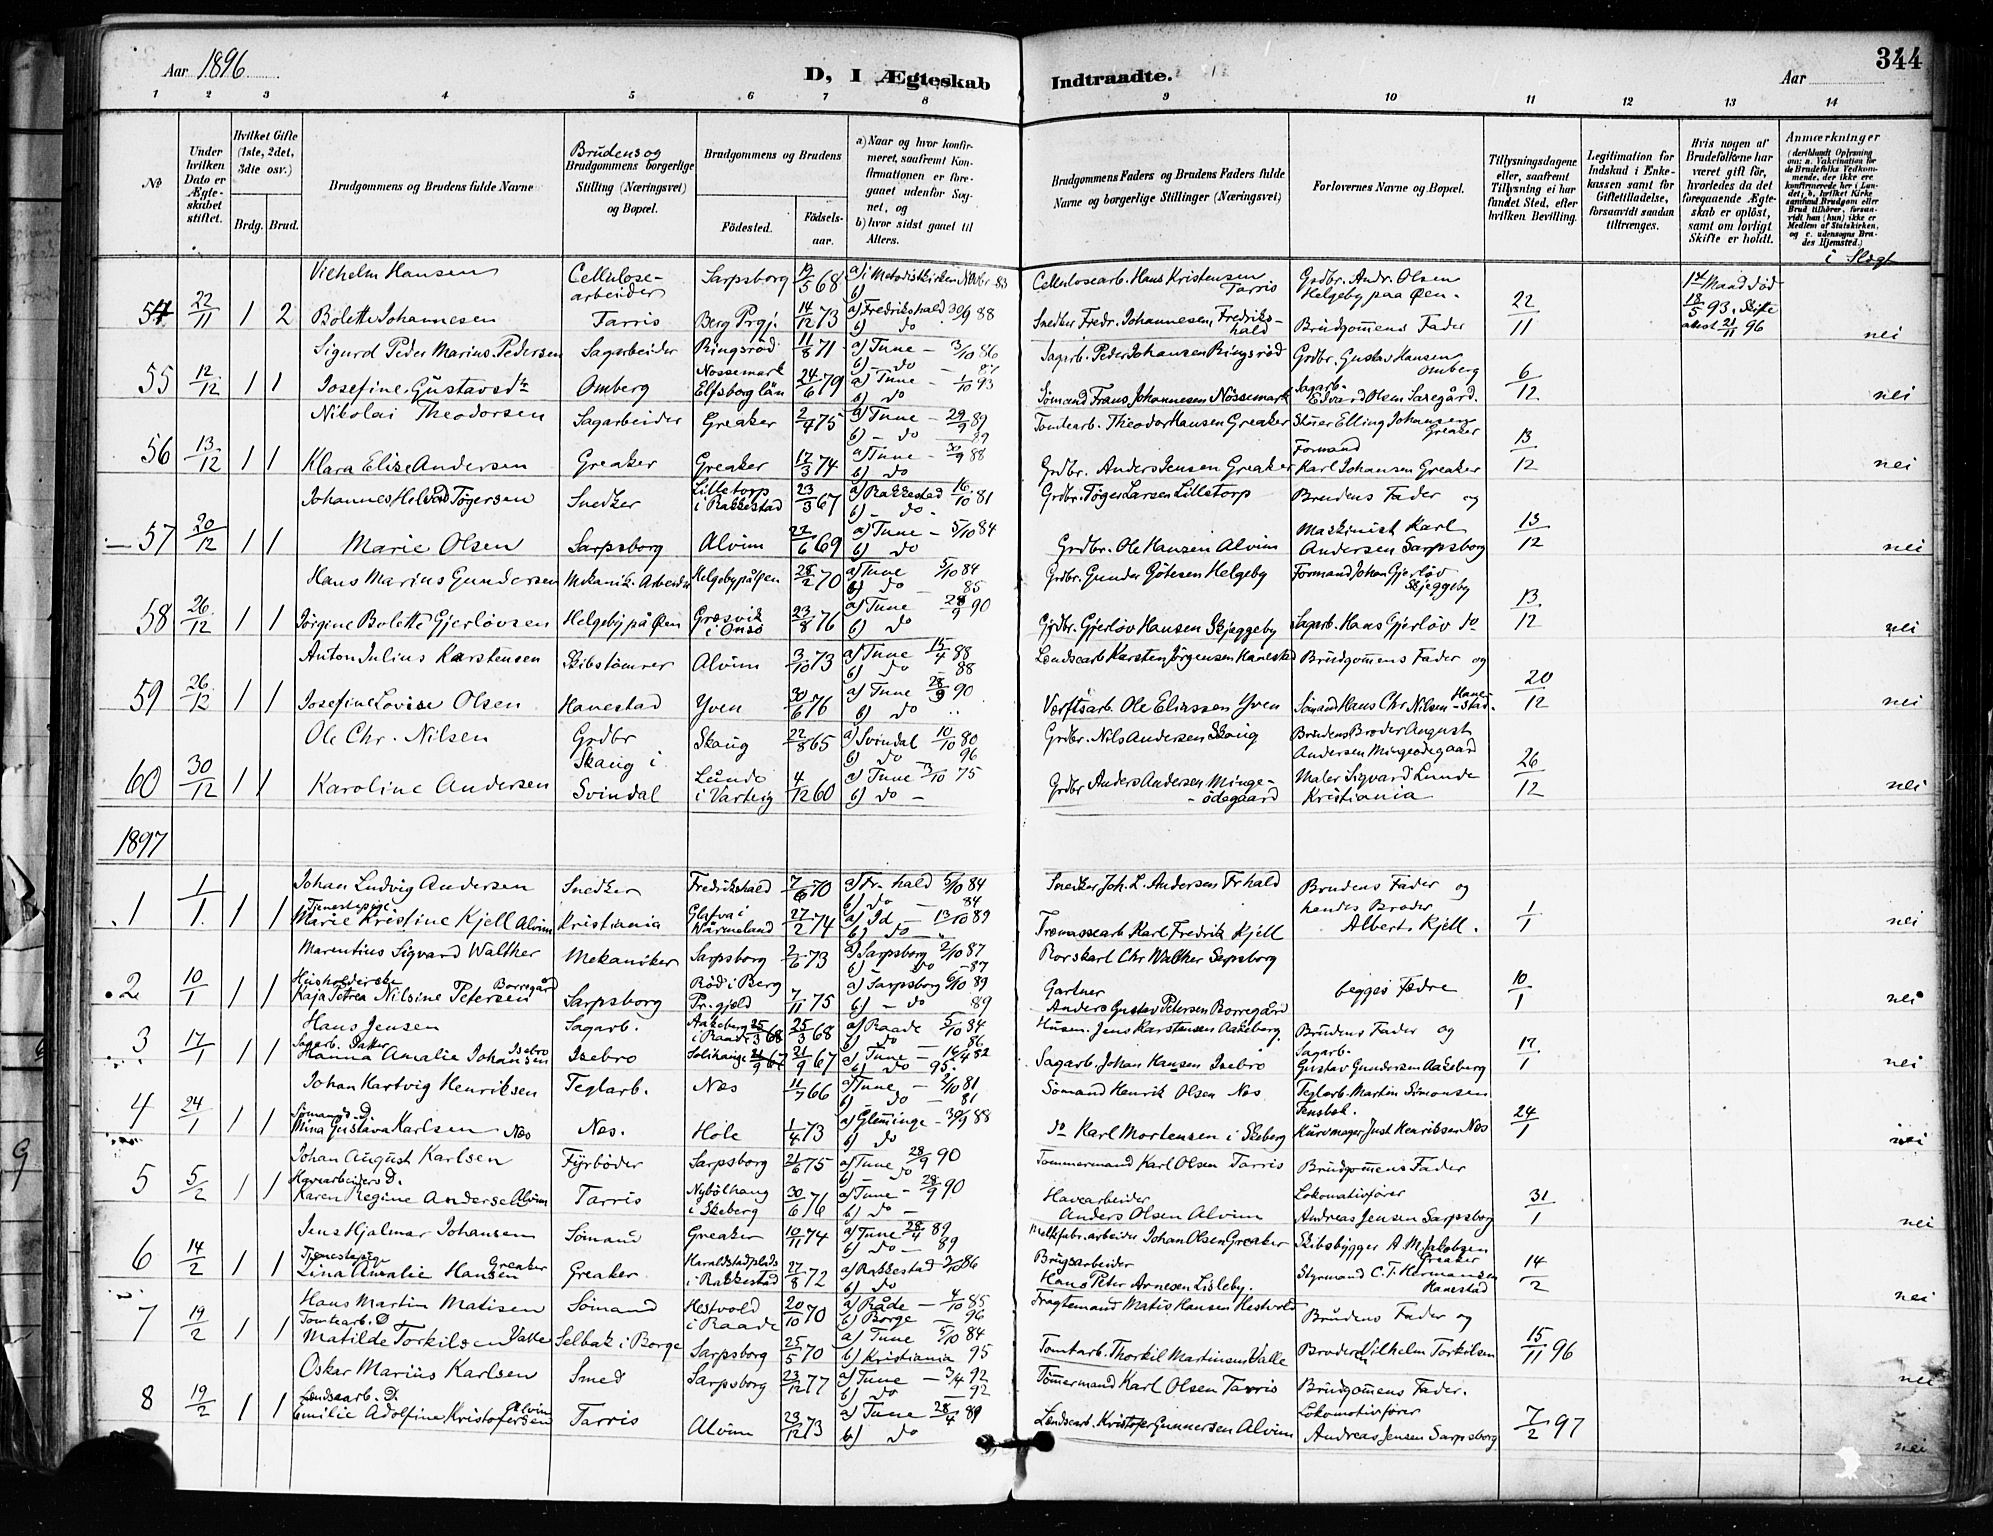 344
Aar 1896
D, I Ægteskab Indtraadte.
Aar
1 2 3 4 5 6 7 8 9 10 11 12 13 14
No
Under hvilken Dato er Ægteskabet stiftet.
Hvilket Gifte (1ste, 2det, 3die osv.)
Brdg. Brud.
Brudgommens og Brudens fulde Navne
Brudens og
Brudgommens borgerlige Stilling (Næringsvei) og Bopæl.
Brudgommens og Brudens
Fødested.
Fødselsaar.
a) Naar og hvor konfirmeret, saafremt Konfirmationen er foregaaet udenfor Sognet, og
b) hvor sidst gaaet til Alters.
Brudgommens Faders og Brudens Faders fulde Navne og borgerlige Stillinger (Næringsvei)
Forlovernes Navne og Bopæl.
Tillysningsdagene eller, saafremt Tillysning ei har fundet Sted, efter hvilken Bevilling.
Legitimation for Indskud i Enkekassen samt for Giftetilladelse, forsaavidt saadan tiltrænges.
Hvis nogen af Brudefolkene har været gift før, hvorledes da det foregaaende Ægteskab er opløst, samt om lovligt Skifte er holdt.
Anmærkninger
i Slægt
Vilhelm Hansen Cellulose-arbeider Sarpsborg 19/5 68 a) i Metodistkirken Novbr 83 Cellulosearb. Hans Kristensen Tarris Grdbr. Andr. Olsen Helgeby paa Øen.
54 22/11 1 2 Bolette Johannesen Tarris Berg Prgj. 14/12 73 a) Fredrikshald 30/9 88 b) do Snedker Fredr. Johannesen, Fredrikshald Brudgom̅ens Fader 22/11 1ste Mand død 18/5 93. Skifte attest 21/11 96 nei
Sigurd Peder Marius Pedersen Sagarbeider Ringsrød 11/8 71 a) Tune – 3/10 86 b) – do Sagarb. Peder Johansen Ringsrød Grdbr. Gustav Hansen Omberg
55 12/12 1 1 Josefine Gustavsdtr Omberg Nossemark Elfsborg län 24/6 79 a) Tune – 1/10 93 b) do Sømand Frans Johannesen Nössemark Sagarb. Edvard Olsen Saxegård. 6/12 nei
Nikolai Theodorsen Sagarbeider Greaker 2/4 75 a) Tune – 29/9 89 b) – do 89 Tomtearb. Theodor Hansen Greaker Stuer Elling Johansen Greaker
56 13/12 1 1 Klara Elise Andersen Greaker Greaker 17/3 74 a) Tune – 30/9 88 b) do Grdbr. Anders Jensen Greaker Formand Karl Johansen Greaker 13/12 nei
Johannes Helvard Tögersen Snedker Lilletorp i Rakkestad 23/3 67 a) Rakkestad 16/10 81 b) – do – Grdbr. Töger Larsen Lilletorp Brudens Fader og
57 20/12 1 1 Marie Olsen Sarpsborg Alvim 22/6 69 a) Tune – 5/10 84 b) do Grdbr. Ole Hansen Alvim Maskinist Karl Andersen Sarpsborg 13/12 nei
Hans Marius Gundersen Mekanik. Arbeider Helgeby på Øen 28/2 70 a) Tune 5/10 84 b) do 85 Grdbr. Gunder Götesen Helgeby Formand Johan Gjerløv Skjeggeby
58 26/12 1 1 Jørgine Bolette Gjerløvsen Helgeby på Øen Græsvik i Onsø 23/8 76 a) Tune 28/9 90 b) do Grdbr. Gjerløv Hansen Skjeggeby Sagarb. Hans Gjerløv do 13/12 nei
Anton Julius Karstensen Skibstømrer Alvim 3/10 73 a) Tune 15/4 88 b) do 88 Landsearb Karsten Jörgensen Hanestad Brudgom̅ens Fader og
59 26/12 1 1 Josefine Lovise Olsen Hanestad Yven 30/6 76 a) Tune 28/9 90 b) do Værftsarb. Ole Eliassen Yven Sömand Hans Chr Nilsen Hanestad. 20/12 nei
Ole Chr. Nilsen Grdbr Skaug 22/8 65 a) Svindal 10/10 80 b) do 96 Grdbr. Nils Andersen Skaug Brudens Broder August Andersen Mingeødegaard
60 30/12 1 1 Karoline Andersen Skaug i Svindal Lunde i Varteig 4/12 60 a) Tune 3/10 75 b) do – Grdbr Anders Andersen Minge-ödegaard Maler Sigvard Lunde Kristiania 26/12 nei
1897
Johan Ludvig Andersen Snedker Fredrikshald 7/6 70 a) Fr. hald 5/10 84 b) do 84 Snedker Joh. L. Andersen Frhald Brudens Fader og
1 1/1 1 1 Tjenestepige Marie Kristine Kjell Alvim Kristiania Glafva i Wärmeland 27/2 74 a) Id – 13/10 89 b) do Træmassearb Karl Fredrik Kjell hendes Broder Albert Kjell. 1/1 nei
Marentius Sigvard Walther Mekaniker Sarpsborg 2/6 73 a) Sarpsborg 2/10 87 b) do – 87 Rorskarl Chr Walther Sarpsborg
2 10/1 1 1 Husholderske Borregård Kaja Petrea Nilsine Petersen Sarpsborg Röd i Berg Pr.gjeld 7/11 75 a) Sarpsborg 6/10 89 b) – do 89 Gartner Anders Gustav Petersen Borregård begges Fædre 10/1 nei
Hans Jensen Sagarb. Aakeberg i Raade 25/3 68 a) Raade 5/10 84 b) do 86 Husm. Jens Karstensen Aakeberg. Brudens Fader og
3 17/1 1 1 Sagarb. Datter Hanna Amalie Johansen Isebro Isebro 21/9 67 a) Tune – 16/4 82 b) do 95. Sagarb. Johan Hansen Isebro Sagarb. Gustav Gundersen Aakeberg 17/1 nei
Johan Hartvig Henriksen Teglarb. Næs 11/7 66 a) Tune – 2/10 81 b) – do – 81 Sömand Henrik Olsen Næs Teglarb. Martin Simonsen
4 24/1 1 1 Sömands D. Mina Gustava Karlsen Næs Næs. Hole 1/4 73 a) Glem̅inge – 30/9 88 b) do do Karl Mortensen i Skeberg Kurvmager Just Henriksen Næs 24/1 nei
Johan August Karlsen Fyrbøder Sarpsborg 21/6 75 a) Tune 28/9 90 b) – do Tømmermand Karl Olsen Tarris Brudgom̅ens Fader
5 5/2 1 1 Havearbeiders D. Karen Regine Andersen Alvim Tarris Nybölhaug i Skeberg 30/6 76 a) Tune – 28/9 90 b) do – Havearbeider Anders Olsen Alvim Lokomotivfører Andreas Jensen Sarpsborg 31/1 nei
Jens Hjalmar Johansen Sømand Greaker 10/11 74 a) Tune 28/4 89 b) do – 89 arbeider Johan Olsen Greaker Skibsbygger A. M. Jakobsen Greaker
6 14/2 1 1 Tjenestepige Greaker Lina Amalie Hansen Greaker. Haraldstadplads i Rakkestad 27/8 72 a) Rakkestad 3/10 86 b) do Brugsarbeider Hans Peter Arnesen Lisleby. Styrmand C. T. Hermansen Hanestad 14/2 nei
Hans Martin Matisen Sømand Hestvold i Raade 20/10 70 a) Råde – 4/10 85 b) Borge – 96 Fragtemand Matis Hansen Hestvold Brudens Fader og
7 19/2 1 1 Tomtearb. D Matilde Torkilsen Valle Selbak i Borge Sarpsborg 25/5 70 a) Tune 5/10 84 b) Kristiania 95 Tomtarb. Thorkil Martinsen Valle Broderen Vilhelm Torkilsen 15/11 96 nei
Oskar Marius Karlsen Smed Sarpsborg 23/12 77 a) Tune – 3/4 92 b) do – 92 Tömmermand Karl Olsen Tarris Brudgom̅ens Fader.
8 19/2 1 1 Landsearb. D. Alvim Emilie Adolfine Kristofersen Tarris Alvim 23/12 73 a) Tune 28/4 89 b) do Landsearb. Kristofer Gunnersen Alvim Lokomotivfører Andreas Jensen Sarpsborg 7/2 97 nei